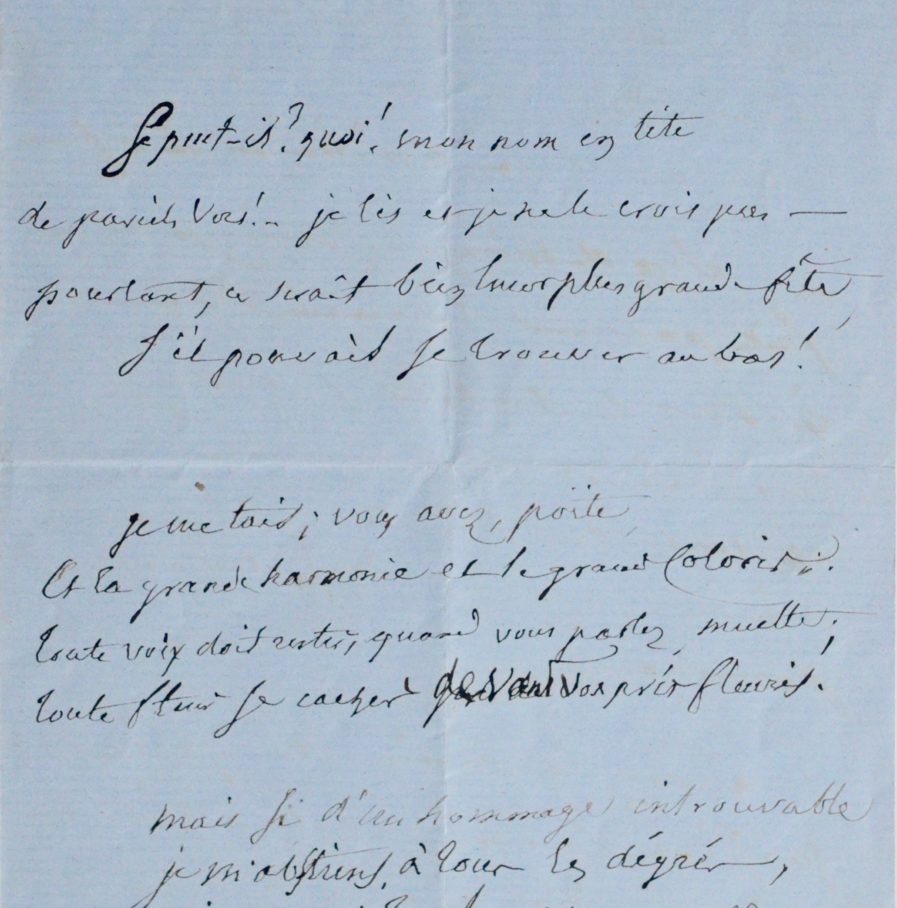 Se peut-il? quoi! mon nom en tête
de pareils Vers!.. je lis et je ne le crois pas —
pourtant, ce serait bien leur plus grande fête,
S'il pouvait se trouver au bas!
je me tais; vous avez, poëte,
Et la grande harmonie et le grand Coloris;
toute voix doit rester, quand vous parlez, muette.
toute fleur se cacher devant vos prés fleuris!
mais si d'un hommage introuvable
je m'abstiens, à tour les dégrés,